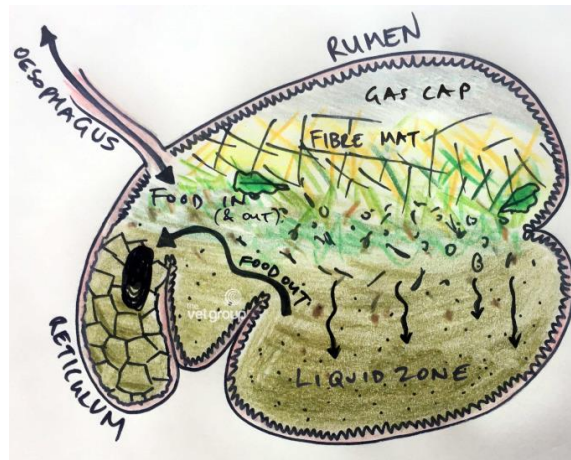 RUMEN
OESOPHAGUS
GAS CAP
FIBRE MAT
FOOD IN
(& OUT)
FOOD OUT
the
vet group
RETICULUM
LIQUID ZONE